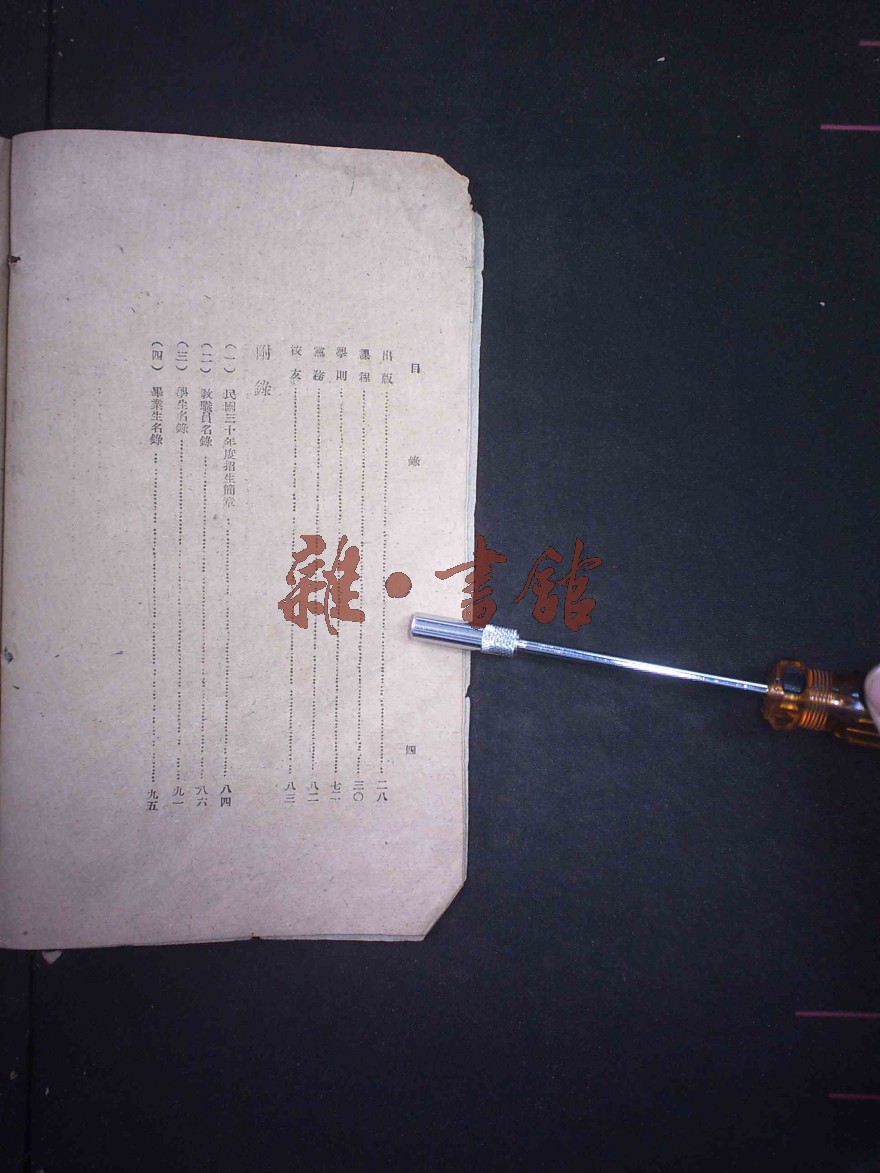 目錄 四
出版 二八
課程 三〇
學則 七二
黨務 八二
校友 八三
附錄
（一）民國三十年度招生簡章 八四
（二）教職員名錄 八六
（三）學生名錄 九一
（四）畢業生名錄 九五
雜·書館